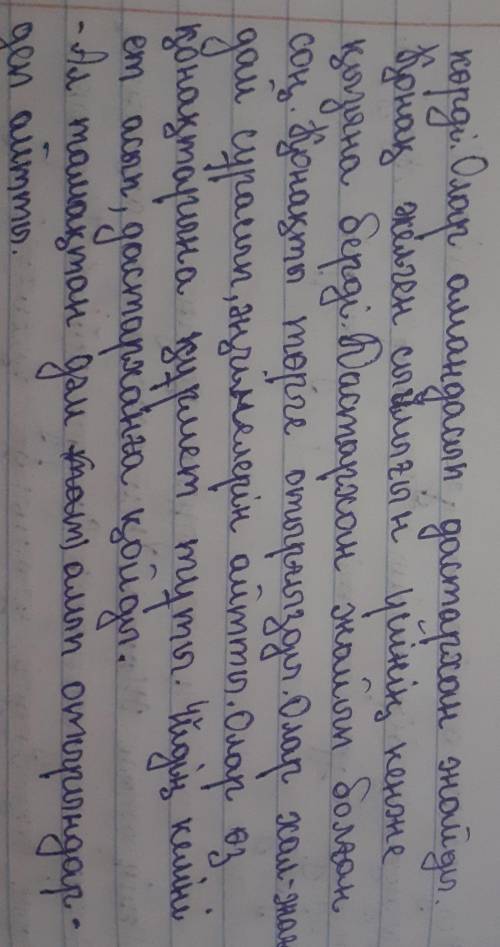 көрді. Олар амандасып дастархан жайды.
Қонақ әкелген сыйлығын үйінің кенже
қызына берді. Дастархан жайып болған
соң. Қонақты төрге отырғызды. Олар хал-жағ
дай сұрасып, әңгімелерін айтты. Олар өз
қонақтарына құрмет тұтты. Үйдің келіні
ет асып, дастарханға қойды.
- Ал тамақтан дәм тәт алып отырыңдар-
деп айтты.